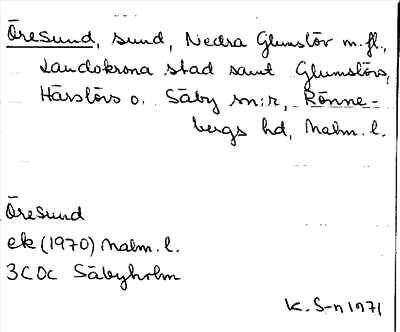 Öresund, sund, Nedra Glumslöv m.fl.,
Landskrona stad samt Glumslövs,
Härslövs o. Säby sn:r, Rönne-
bergs hd, Malm. l.
Öresund
ek (1970) Malm. l.
3C 0c Säbyholm
K. S-n 1971